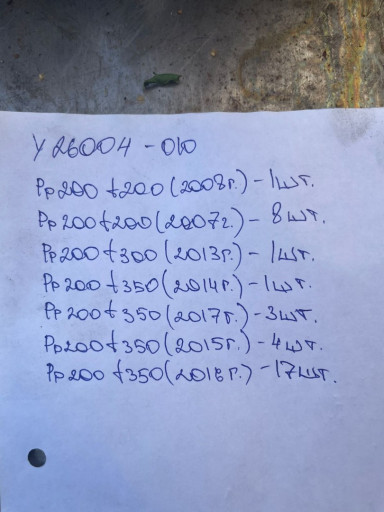 У26004-010
Рр200 t200(2008г.) - 1шт.
Рр200 t200(2007г.) - 8шт.
Рр200 t300(2013г.) - 1шт.
Рр200 t350(2014г.) - 1шт.
Рр200 t350(2017г.) - 3шт.
Рр200 t350(2015г.) - 4шт.
Рр200 t350(2016г.) - 17шт.